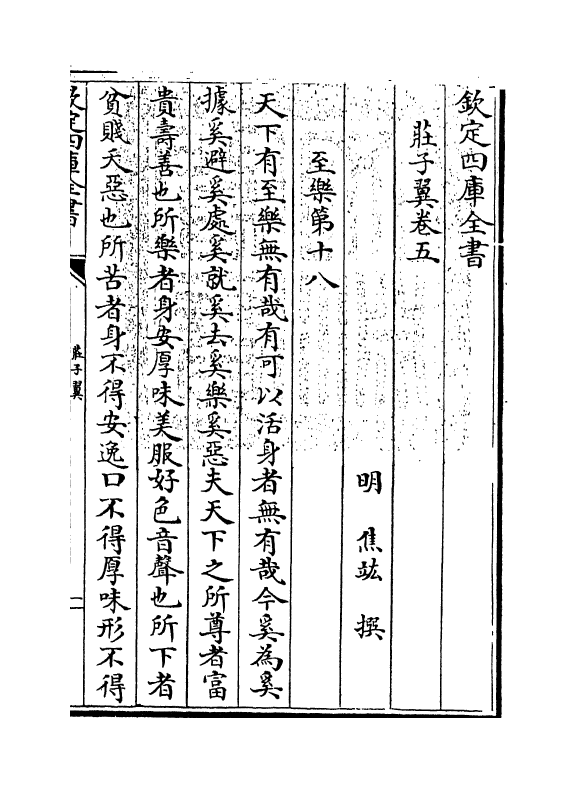 欽定四庫全書
莊子翼卷五
明　焦竑　撰
至樂第十八
天下有至樂無有哉有可以活身者無有哉今奚為奚
據奚避奚處奚就奚去奚樂奚惡夫天下之所尊者富
貴壽善也所樂者身安厚味美服好色音聲也所下者
貧賤夭惡也所苦者身不得安逸口不得厚味形不得
欽定四庫全書
莊子翼
一